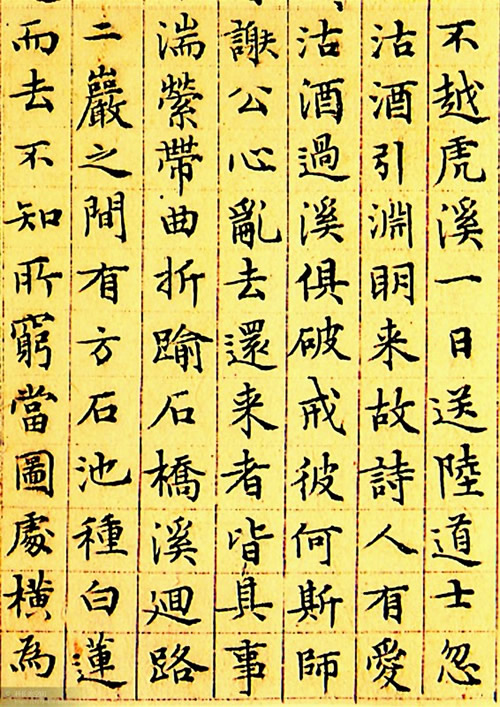 不越虎溪一日送陸道士忽
沽酒引淵眀来故詩人有愛
沽酒過溪俱破戒彼何斯師
謝公心亂去還来者皆其事
湍縈帶曲折踰石橋溪廻路
二巖之間有方石池種白蓮
而去不知所窮當圖處横為